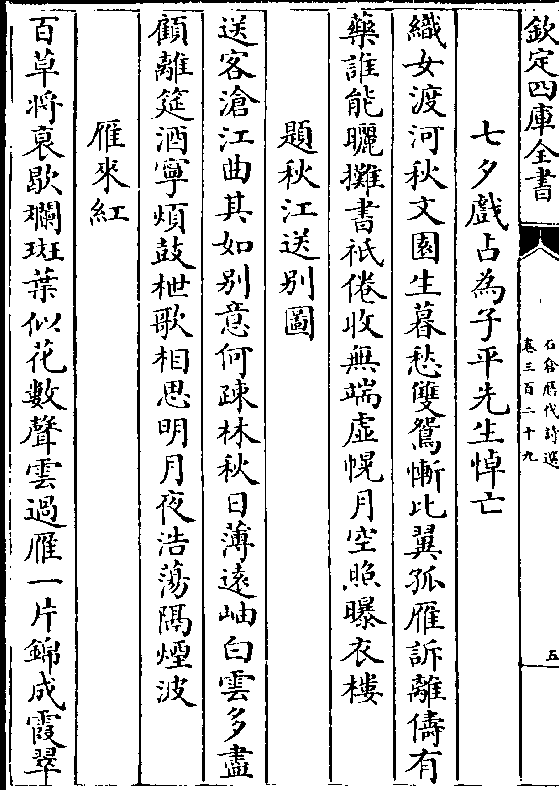 欽定四庫全書
石倉歷代詩選
卷三百二十九
五
七夕戲占為子平先生悼亡
織女渡河秋文園生暮愁雙鴛慚比翼孤雁訴離儔有
藥誰能曬攤書祇倦收無端虛幌月空照曝衣樓
題秋江送別圖
送客滄江曲其如別意何疎林秋日薄遠岫白雲多盡
顧離筵酒寧煩鼓枻歌相思明月夜浩蕩隔煙波
雁來紅
百草將衰歇斕斑葉似花數聲雲過雁一片錦成霞翠